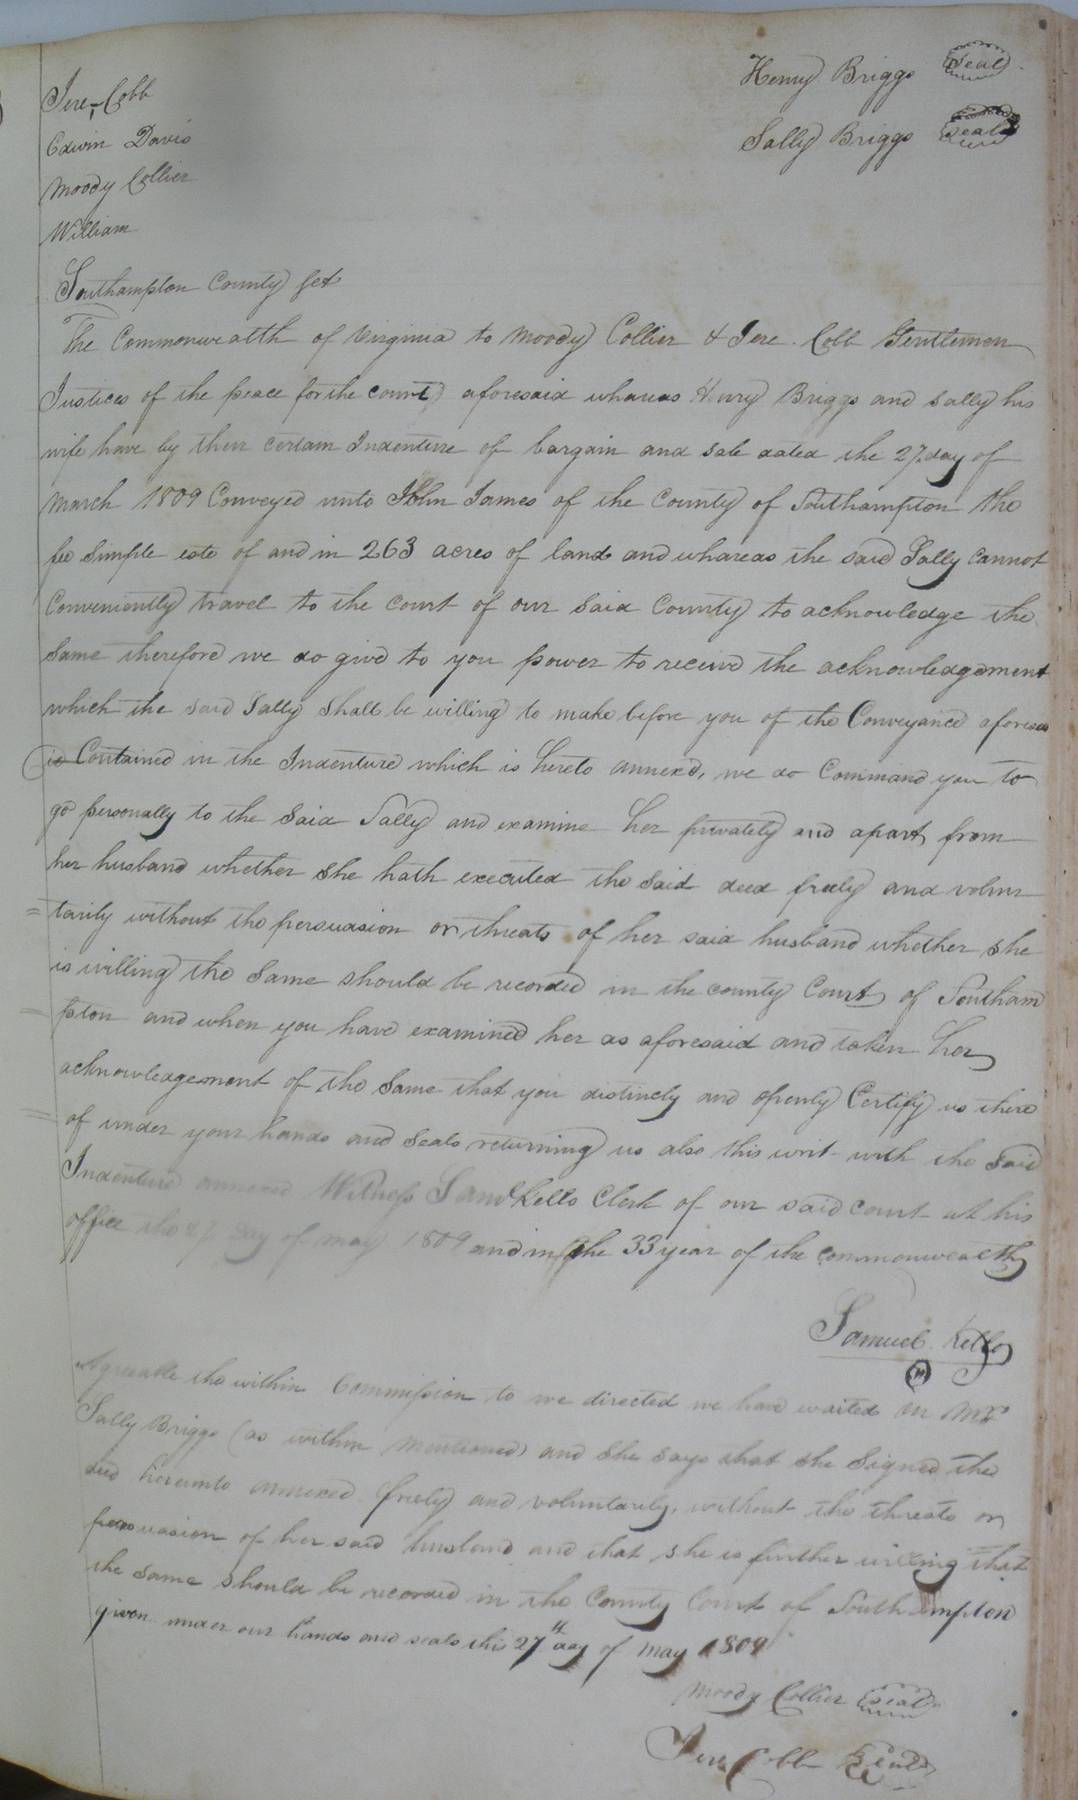 Henry Briggs Seal
Jere, Cobb
Sally Briggs Seal
Edwin Davis
Moody Collier
William
Southampton County Sct
The Commonwealth of Virginia to Moody Collier & Jere. Cobb Gentlemen
Justices of the peace for the county aforesaid whareas Henry Briggs and Sally his
wife have by their certain Indenture of bargain and sale dated the 27 day of
March 1809 Conveyed unto John James of the County of Southampton the
fee simple este of and in 263 acres of land and whareas the said Sally cannot
Conveniently travel to the court of our said County to acknowledge the
same therefore we do give to you power to receive the acknowledgement
which the said Sally shall be willing to make before you of the Conveyance aforesa
id Contained in the Indenture which is hereto annexd, we do Command you to
go personally to the said Sally and examine her privately and apart from
her husband whether she hath executed the said deed freely and volun
=tarily without the persuasion or threats of her said husband whether she
is willing the same should be recorded in the county Court of Southam
=pton and when you have examined her as aforesaid and taken her
acknowledgement of the same that you distinctly and openly Certify us there
=of under your hands and seals returning us also this writ with the said
Indenture annexed Witness Saml Kello Clerk of our said court at his
office the 27 day of may 1809 and in the 33 year of the commonwealth
Samuel Kello
Agreeable the within Commission to we directed we have waited on Mrs
Sally Briggs (as within mentioned) and she says that she signed the
deed hereunto annexed freely and voluntarily, without the threats or
persuasion of her said husband and that she is further willing that
the same should be recorded in the County Court of Southampton
given under our hands and seals this 27th day of may 1809
Moody Collier Seal
Jere, Cobb Seal